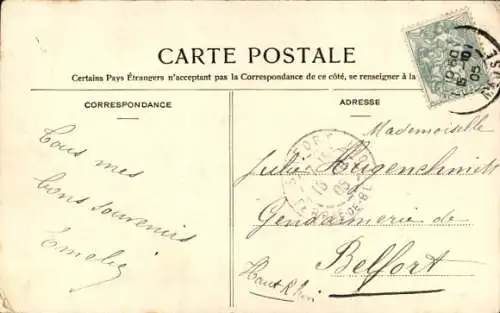 CARTE POSTALE
Certains Pays Étrangers n'acceptant pas la Correspondance de ce côté, se renseigner à la
CORRESPONDANCE
ADRESSE
Tous mes
bons souvenirs
Emélie
Mademoiselle
Julie Hugenschmidt
Gendarmerie de
Belfort
Haut Rhin
BELFORT
16
05